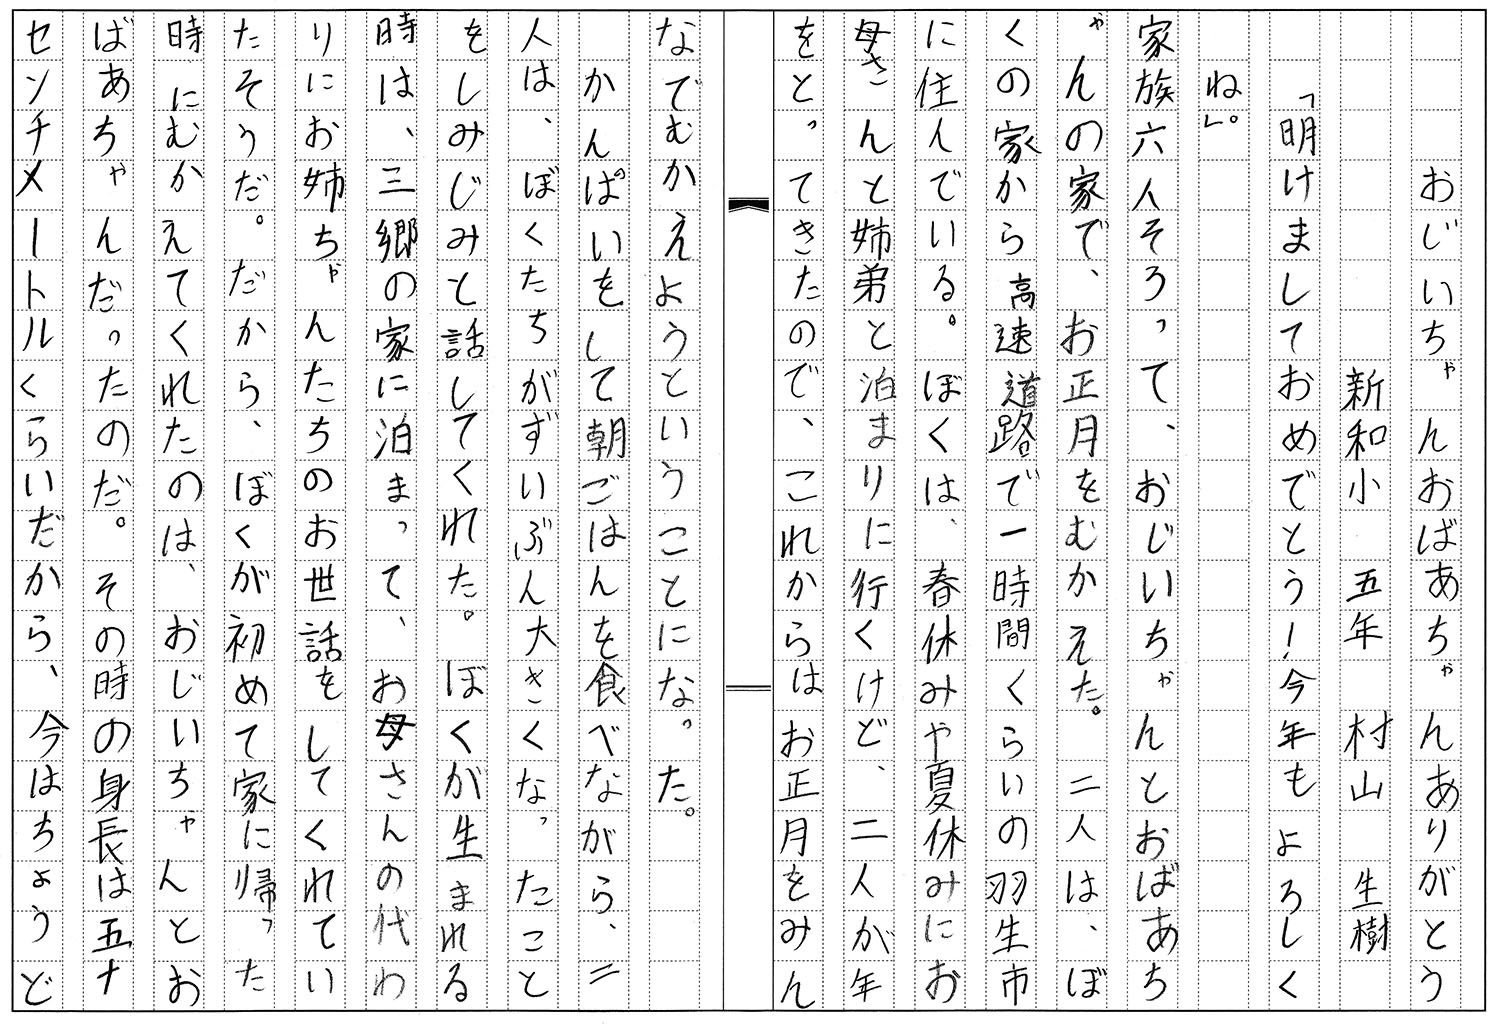 おじいちゃんおばあちゃんありがとう
新和小　五年　村山　生樹
「明けましておめでとう！今年もよろしく
ね」。
家族六人そろって、おじいちゃんとおばあち
ゃんの家で、お正月をむかえた。二人は、ぼ
くの家から高速道路で一時間くらいの羽生市
に住んでいる。ぼくは、春休みや夏休みにお
母さんと姉弟と泊まりに行くけど、二人が年
をとってきたので、これからはお正月をみん
なでむかえようということになった。
かんぱいをして朝ごはんを食べながら、二
人は、ぼくたちがずいぶん大きくなったこと
をしみじみと話してくれた。ぼくが生まれる
時は、三郷の家に泊まって、お母さんの代わ
りにお姉ちゃんたちのお世話をしてくれてい
たそうだ。だから、ぼくが初めて家に帰った
時にむかえてくれたのは、おじいちゃんとお
ばあちゃんだったのだ。その時の身長は五十
センチメートルくらいだから、今はちょうど